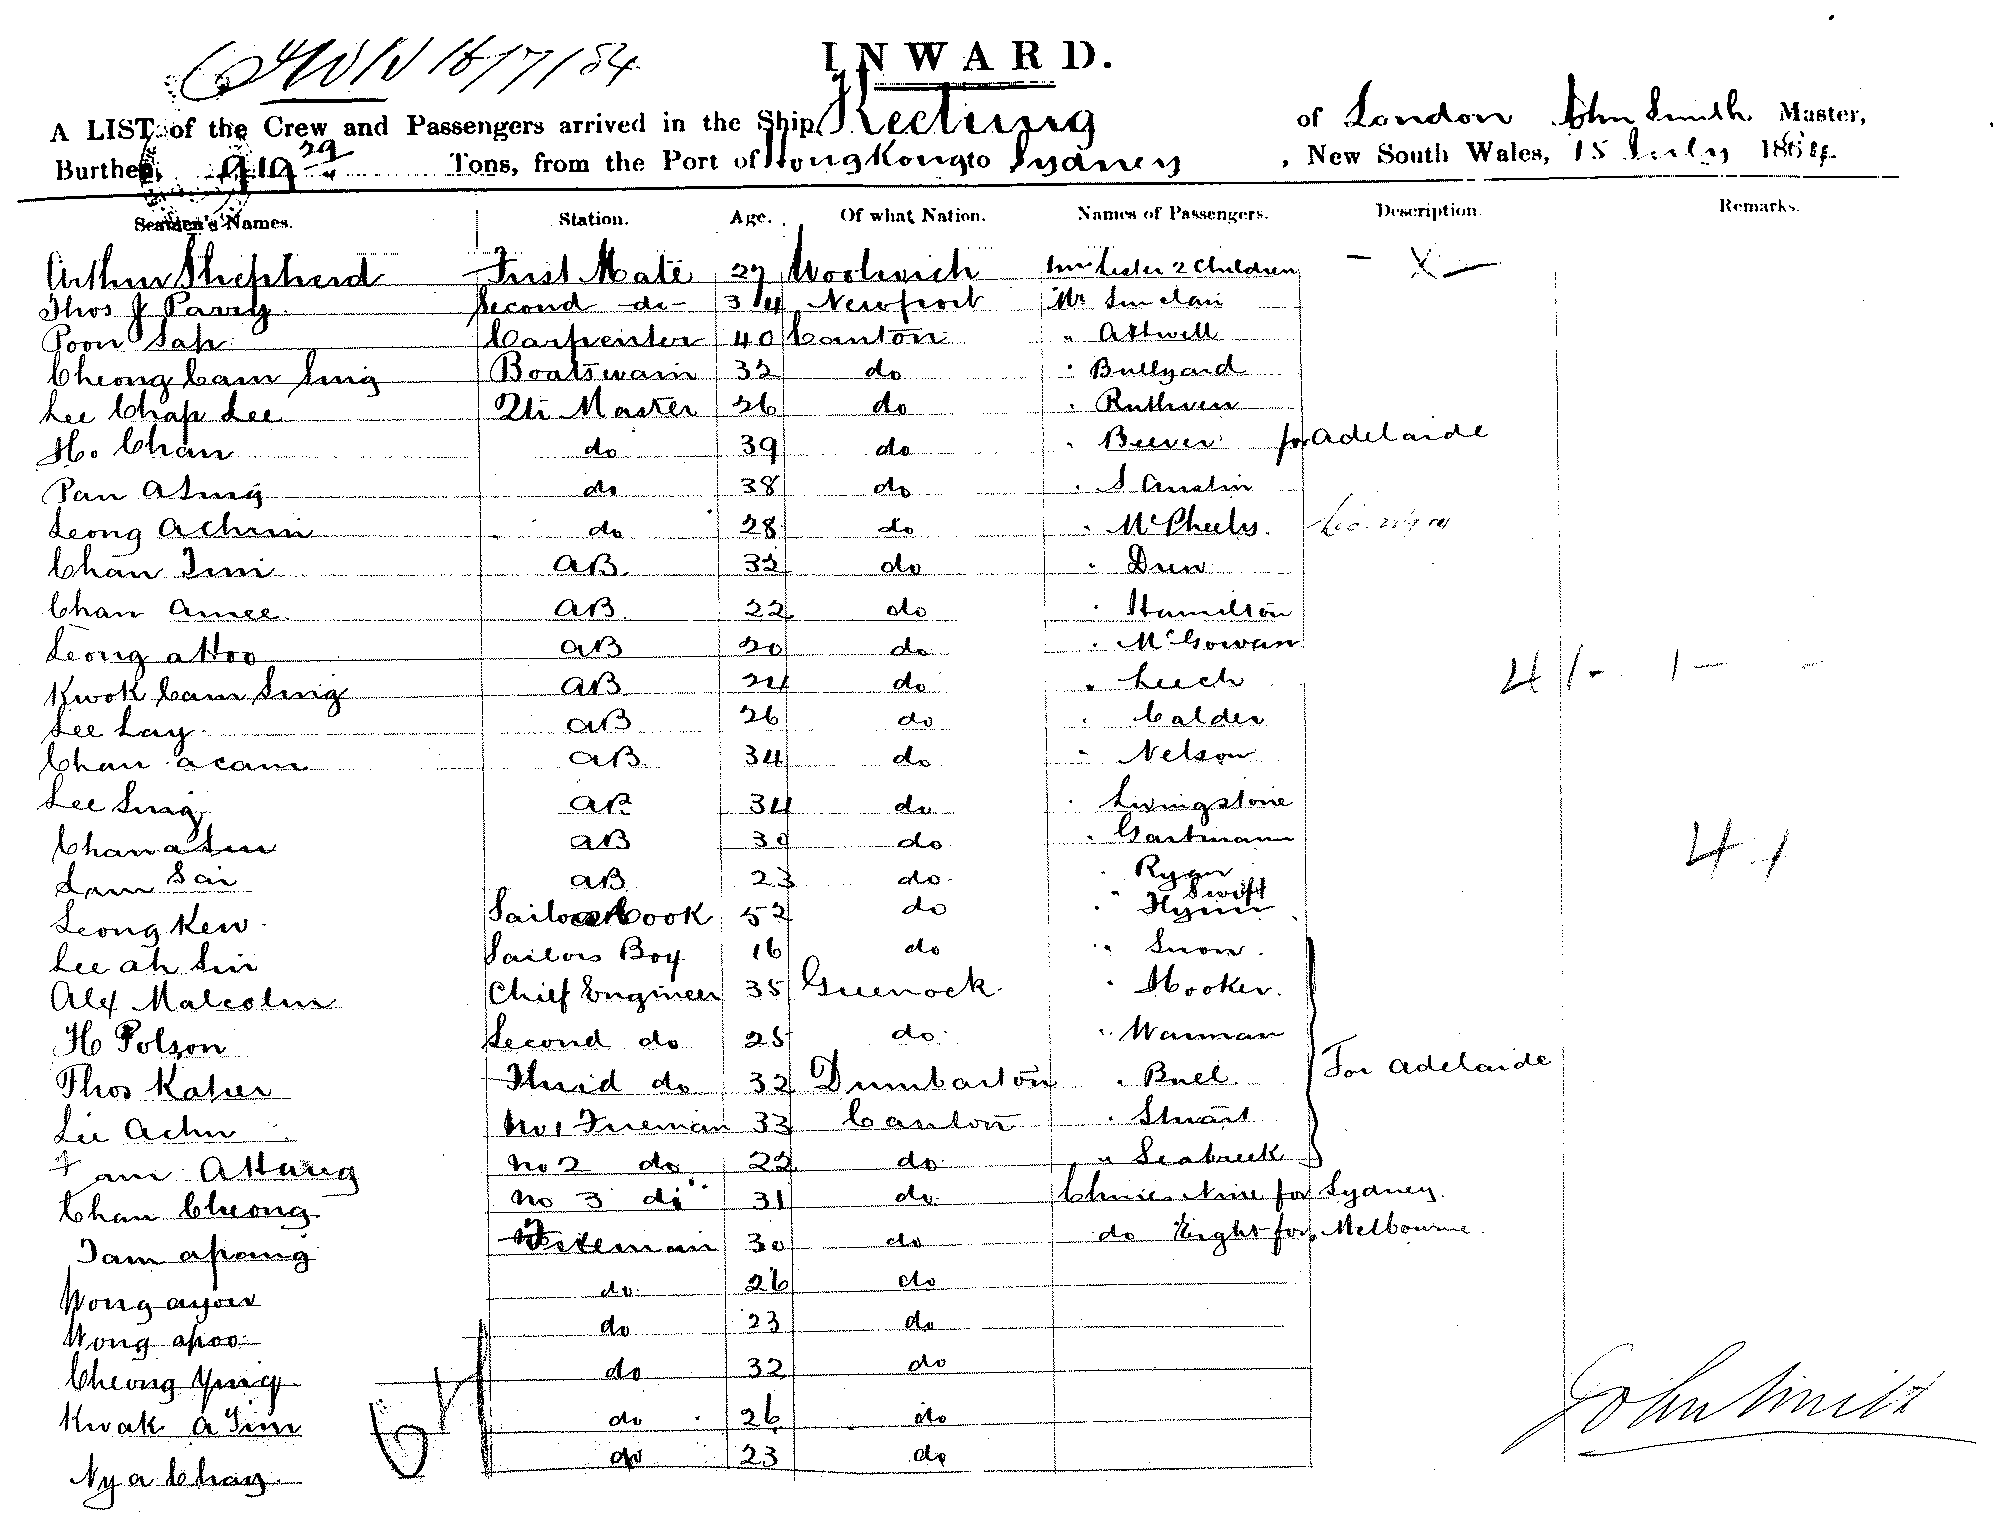 16/7/84
INWARD.
A LIST of the Crew and Passengers arrived in the Ship Keelung of London John Smith Master,
Burthen, Tons, from the Port of HongKong to Sydney, New South Wales, 15 July 1884
Seamen's Names. Station. Age. Of what Nation. Names of Passengers. Description. Remarks.
Arthur Shepherd First Mate 27 Woolwich Lister 2 Children - X -
Thos J Parry Second do 34 Newport Mr Sinclair
Poon Sap Carpenter 40 Canton " Attwell
Cheong Cam Sing Boatswain 32 do " Bullyard
Lee Chap Lee Qtr Master 26 do " Ruthven
H. Chan do 39 do " Beever for Adelaide
Pan Asing do 38 do " S Austin
Leong Achun do 28 do " McPheely.
Chan Jim AB 32 do " Drew
Chan Amee AB 22 do " Hamilton
Leong aHoo AB 20 do " McGowan
Kwok Cam Sing AB 24 do " Leech 41/- 1 - -
Lee Lay AB 26 do " Calder
Chan acam AB 34 do " Nelson
Lee Sing AB 34 do " Livingstone
Chan AB 39 do " Gartmann 4 1
Lam Sai AB 23 do " Ryan
" Swift
Leong Kew Sailors Cook 52 do " Flynn
Lee ah Sin Sailors Boy 16 do " Snow.
Alex Malcolm Chief Engineer 35 Greenock " Hooker.
H Polson Second do 25 do " Warman
Thos Third do 32 Dumbarton " Buel For Adelaide
Lee Achu No 1 Fireman 33 Canton " Stuart
Tam AHang No 2 do 22 do " Seabrook
Chan Cheong No 3 do 31 do Chinese Nine for Sydney.
Tam apang Fireman 30 do do Eight for Melbourne
Wong ayow do 26 do
Wong apoo do 23 do
Cheong Ying do 32 do
Kwak a Tim do 26 do
Ny a Chay do 23 do
John Smith